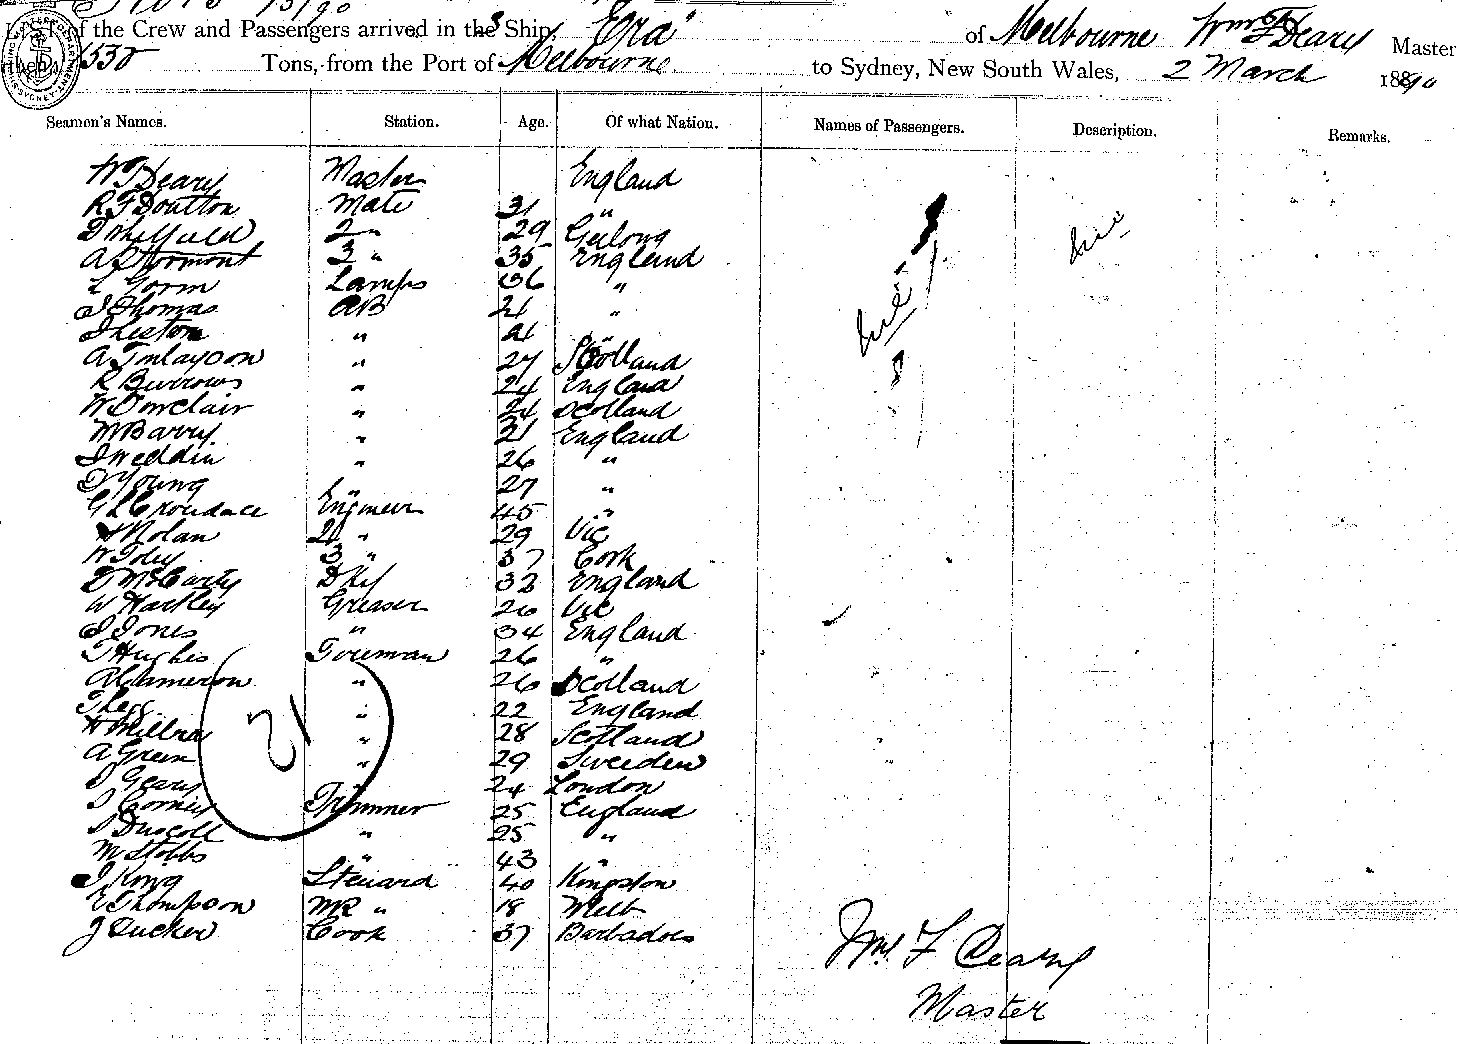 LIST of the Crew and Passengers arrived in the Ship, "Era" of Melbourne Wm F Deary Master
Tons, from the Port of Melbourne to Sydney, New South Wales, 2 March 1890
Seamen's Names. Station. Age. Of what Nation. Names of Passengers. Description. Remarks.
W F Deary Master England
R F Doutton Mate 31 "
2 " 29 Geelong
A Stormont 3 " 35 England
Gorm Lamps 36 "
J Thomas AB 21 "
J Leston " 21 "
A Finlayson " 27 Scotland
R Burrows " 24 England
W Sinclair " 24 Scotland
M Barry " 21 England
J Weddin " 26 "
T Young " 27 "
G L Croudace Engineer 45 "
Nolan 2 " 29 Vic
W Foley 3 " 37 Cork
T McCarty Dky 32 England
W Hartley Greaser 26 Vic
J Jones " 34 England
T Hughes Fireman 26 "
A Cameron " 26 Scotland
" 22 England
H Millna " 28 Scotland
A Green " 29 Sweeden
J Geary 24 London
J Corner Trimmer 25 England
J Driscoll " 25 "
M Stobbs " 43 "
J King Steward 40 Kingston
E Thompson MR " 18 Melb
J Tucker Cook 37 Barbadoes
21
Wm. F Deary
Master